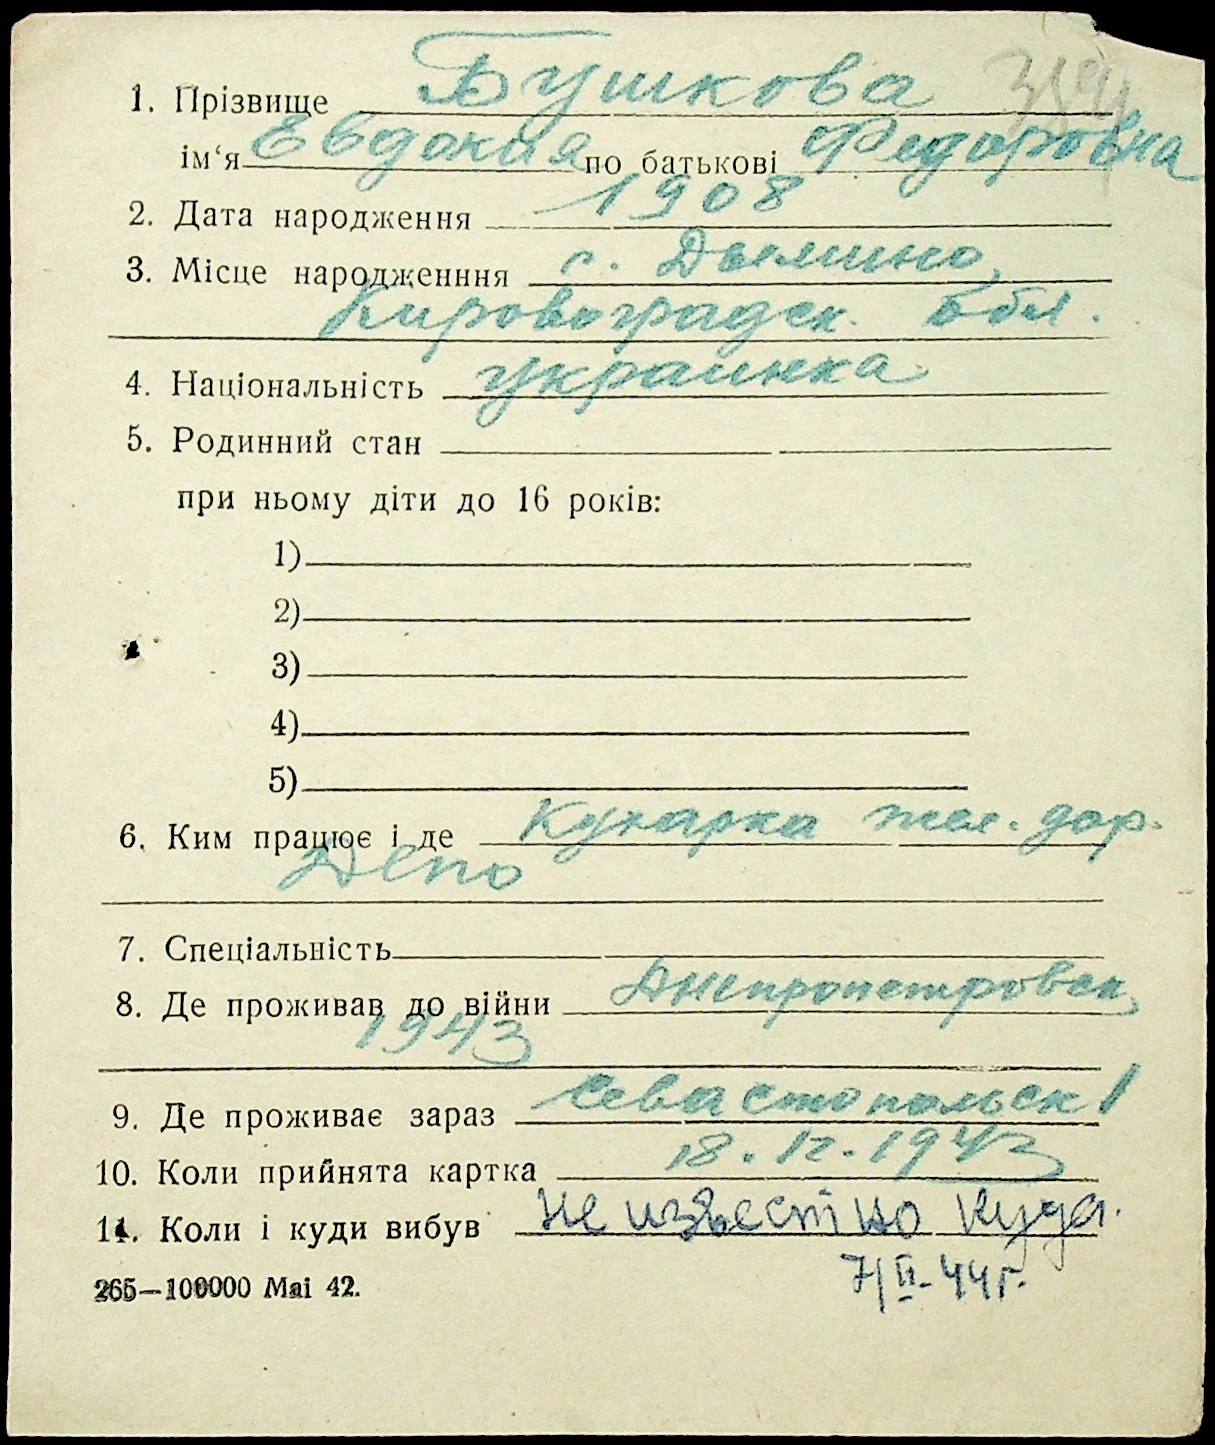 1. Прізвище Бушкова
ім‘я Евдокия по батькові Федоровна
2. Дата народження 1908
3. Місце народженння с.
Кировоградск. обл.
4. Національність украинка
5. Родинний стан
при ньому діти до 16 років:
1)
2)
3)
4)
5)
6. Ким працює і де Кухарка жел. дор.
Депо
7. Спеціальність
8. Де проживав до війни Днепропетровск,
1943
9. Де проживає зараз Севастопольск 1
10. Коли прийнята картка 18.12.1943
11. Коли і куди вибув не извѣстно куда.
265—100000 Mai 42. 7/II-44г.